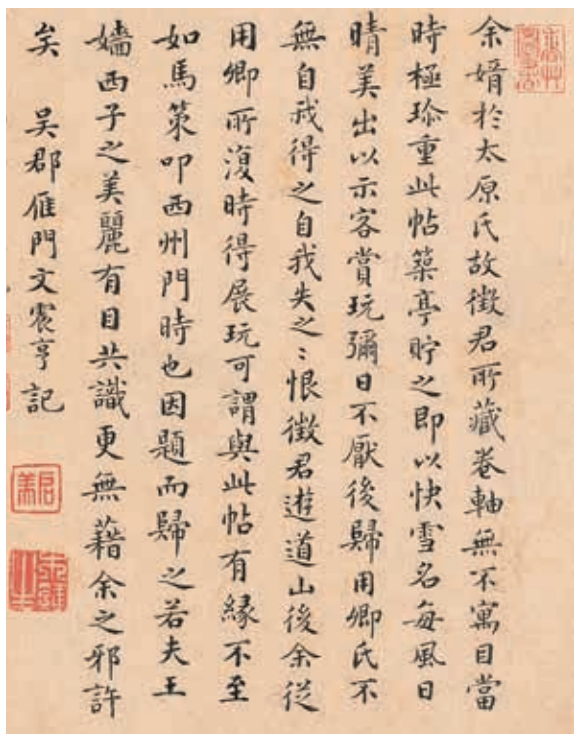 余婿於太原氏故徵君所藏卷軸無不寓目當
時極珍重此帖築亭貯之即以快雪名每風日
晴美出以示客賞玩彌日不厭後歸用卿氏不
無自我得之自我失之〻恨徵君遊道山後余從
用卿所復時得展玩可謂與此帖有緣不至
如馬策叩西州門時也因題而歸之若夫王
嬙西子之美麗有目共識更無藉余之邪許
矣　吳郡雁門文震亨記